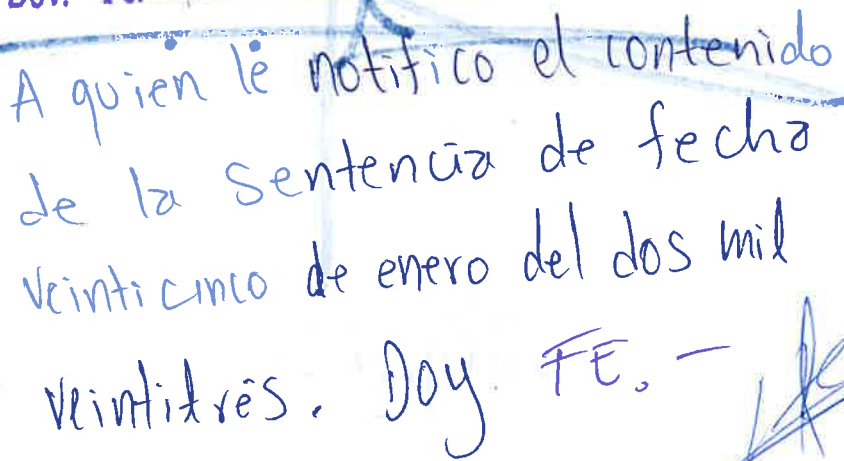 A quien le notifico el contenido
de la sentencia de fecha
veinticinco de enero del dos mil
veintitrés. Doy FE.-